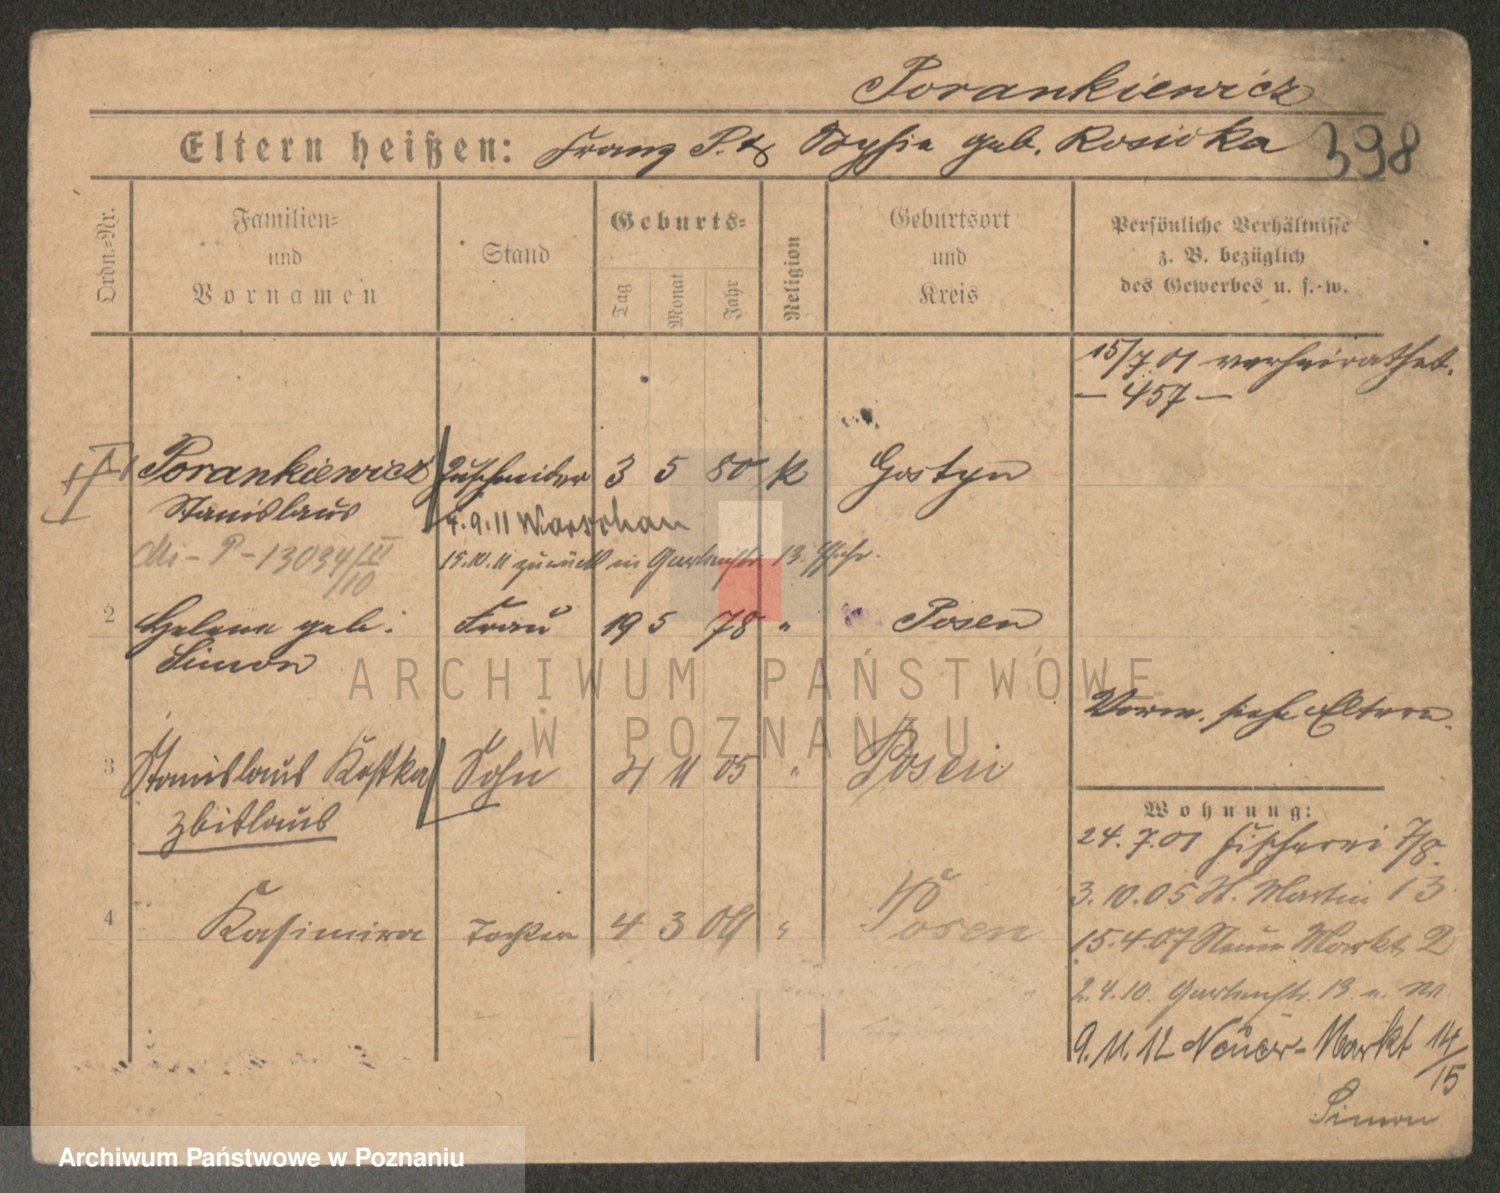 Porankiewicz
Eltern heißen: Franz P. & Sophie geb. Rosicka 398
Ordn.=Nr.
Familien=
und
Vornamen
Stand
Geburts=
Tag
Monat
Jahr
Religion
Geburtsort
und
Kreis
Persönliche Verhältnisse
z. B. bezüglich
des Gewerbes u. s. w.
15/7.01 verheirathet.
— 457 —
Porankiewicz Zuschneider 3 5 80 K Gostyn
Stanislaus 4.9.11 Warschau
15.10.11 zurück in Gartenstr. 13.
Mi - P - 13034/III
/10
2 Helene geb. Frau 19 5 78 " Posen
Simon
Vorw. siehe Eltern.
3 Stanislaus Kostka Sohn 4 11 05 " Posen
Zbislaus
Wohnung:
24.7.01 Fischerei 7/8.
3.10.05 St. Martin 13
4 Kasimira Tochter 4 3 09 " Posen
15.4.07 Neuer Markt 2
2.4.10. Gartenstr. 13
9.11.12 Neuer-Markt 14/15
Simon
ARCHIWUM PAŃSTWOWE
W POZNANIU
Archiwum Państwowe w Poznaniu